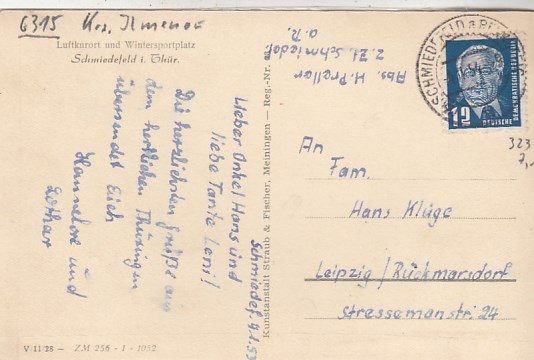 6315 Krs. Ilmenau
Luftkurort und Wintersportplatz
Schmiedefeld i. Thür.
Schmiedef. 9.1.53
Lieber Onkel Hans und
liebe Tante Leni!
Die herzlichsten Grüße aus
dem herrlichen Thüringen
übersendet Euch
Hannelore und
Lothar
V/11/28 — ZM 256 - 1 - 1052
Kunstanstalt Straub & Fischer, Meiningen — Reg.-Nr.
Abs. H. Preller
z. Zt. Schmiedef.
a. R.
SCHMIEDEFELD a. RENNSTEIG
12
DEUTSCHE
DEMOKRATISCHE REPUBLIK
323
7,-
An
Fam.
Hans Kluge
Leipzig / Rückmarsdorf
Stresemannstr. 24